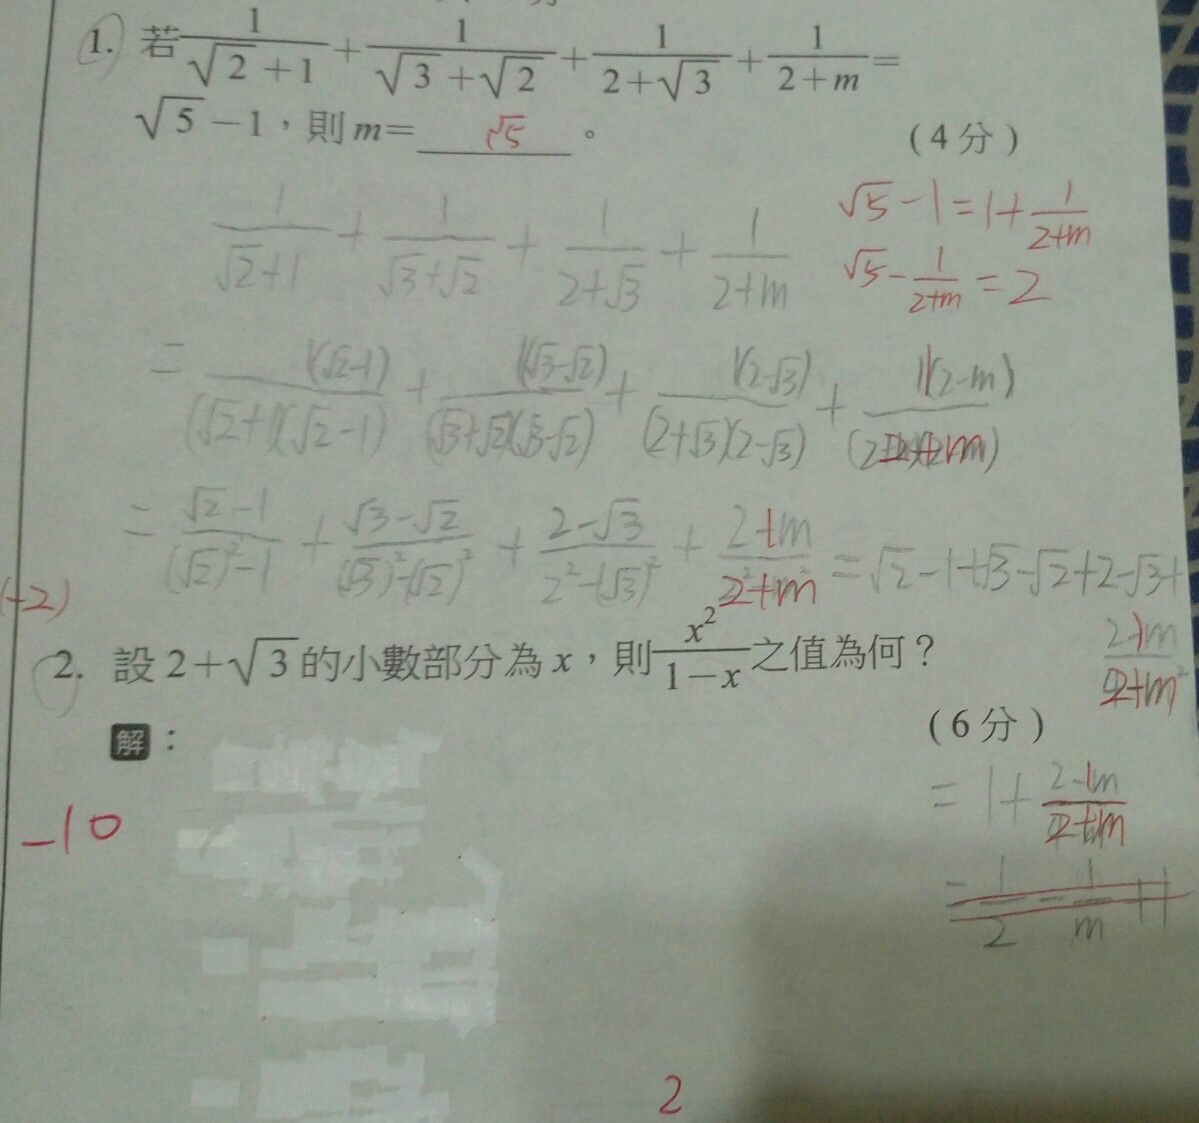 1. 若 1/(√2+1) + 1/(√3+√2) + 1/(2+√3) + 1/(2+m) =
√5-1,則m= √5 。
(4分)
1/(√2+1) + 1/(√3+√2) + 1/(2+√3) + 1/(2+m)
√5-1=1+1/(2+m)
√5-1/(2+m)=2
= 1(√2-1)/(√2+1)(√2-1) + 1(√3-√2)/(√3+√2)(√3-√2) + 1(2-√3)/(2+√3)(2-√3) + 1(2-m)
= (√2-1)/((√2)²-1) + (√3-√2)/((√3)²-(√2)²) + (2-√3)/(2²-(√3)²) + = √2-1+√3-√2+2-√3+
2. 設2+√3的小數部分為x,則 x²/(1-x) 之值為何?
(6分)
解:
= 1+
-10
2